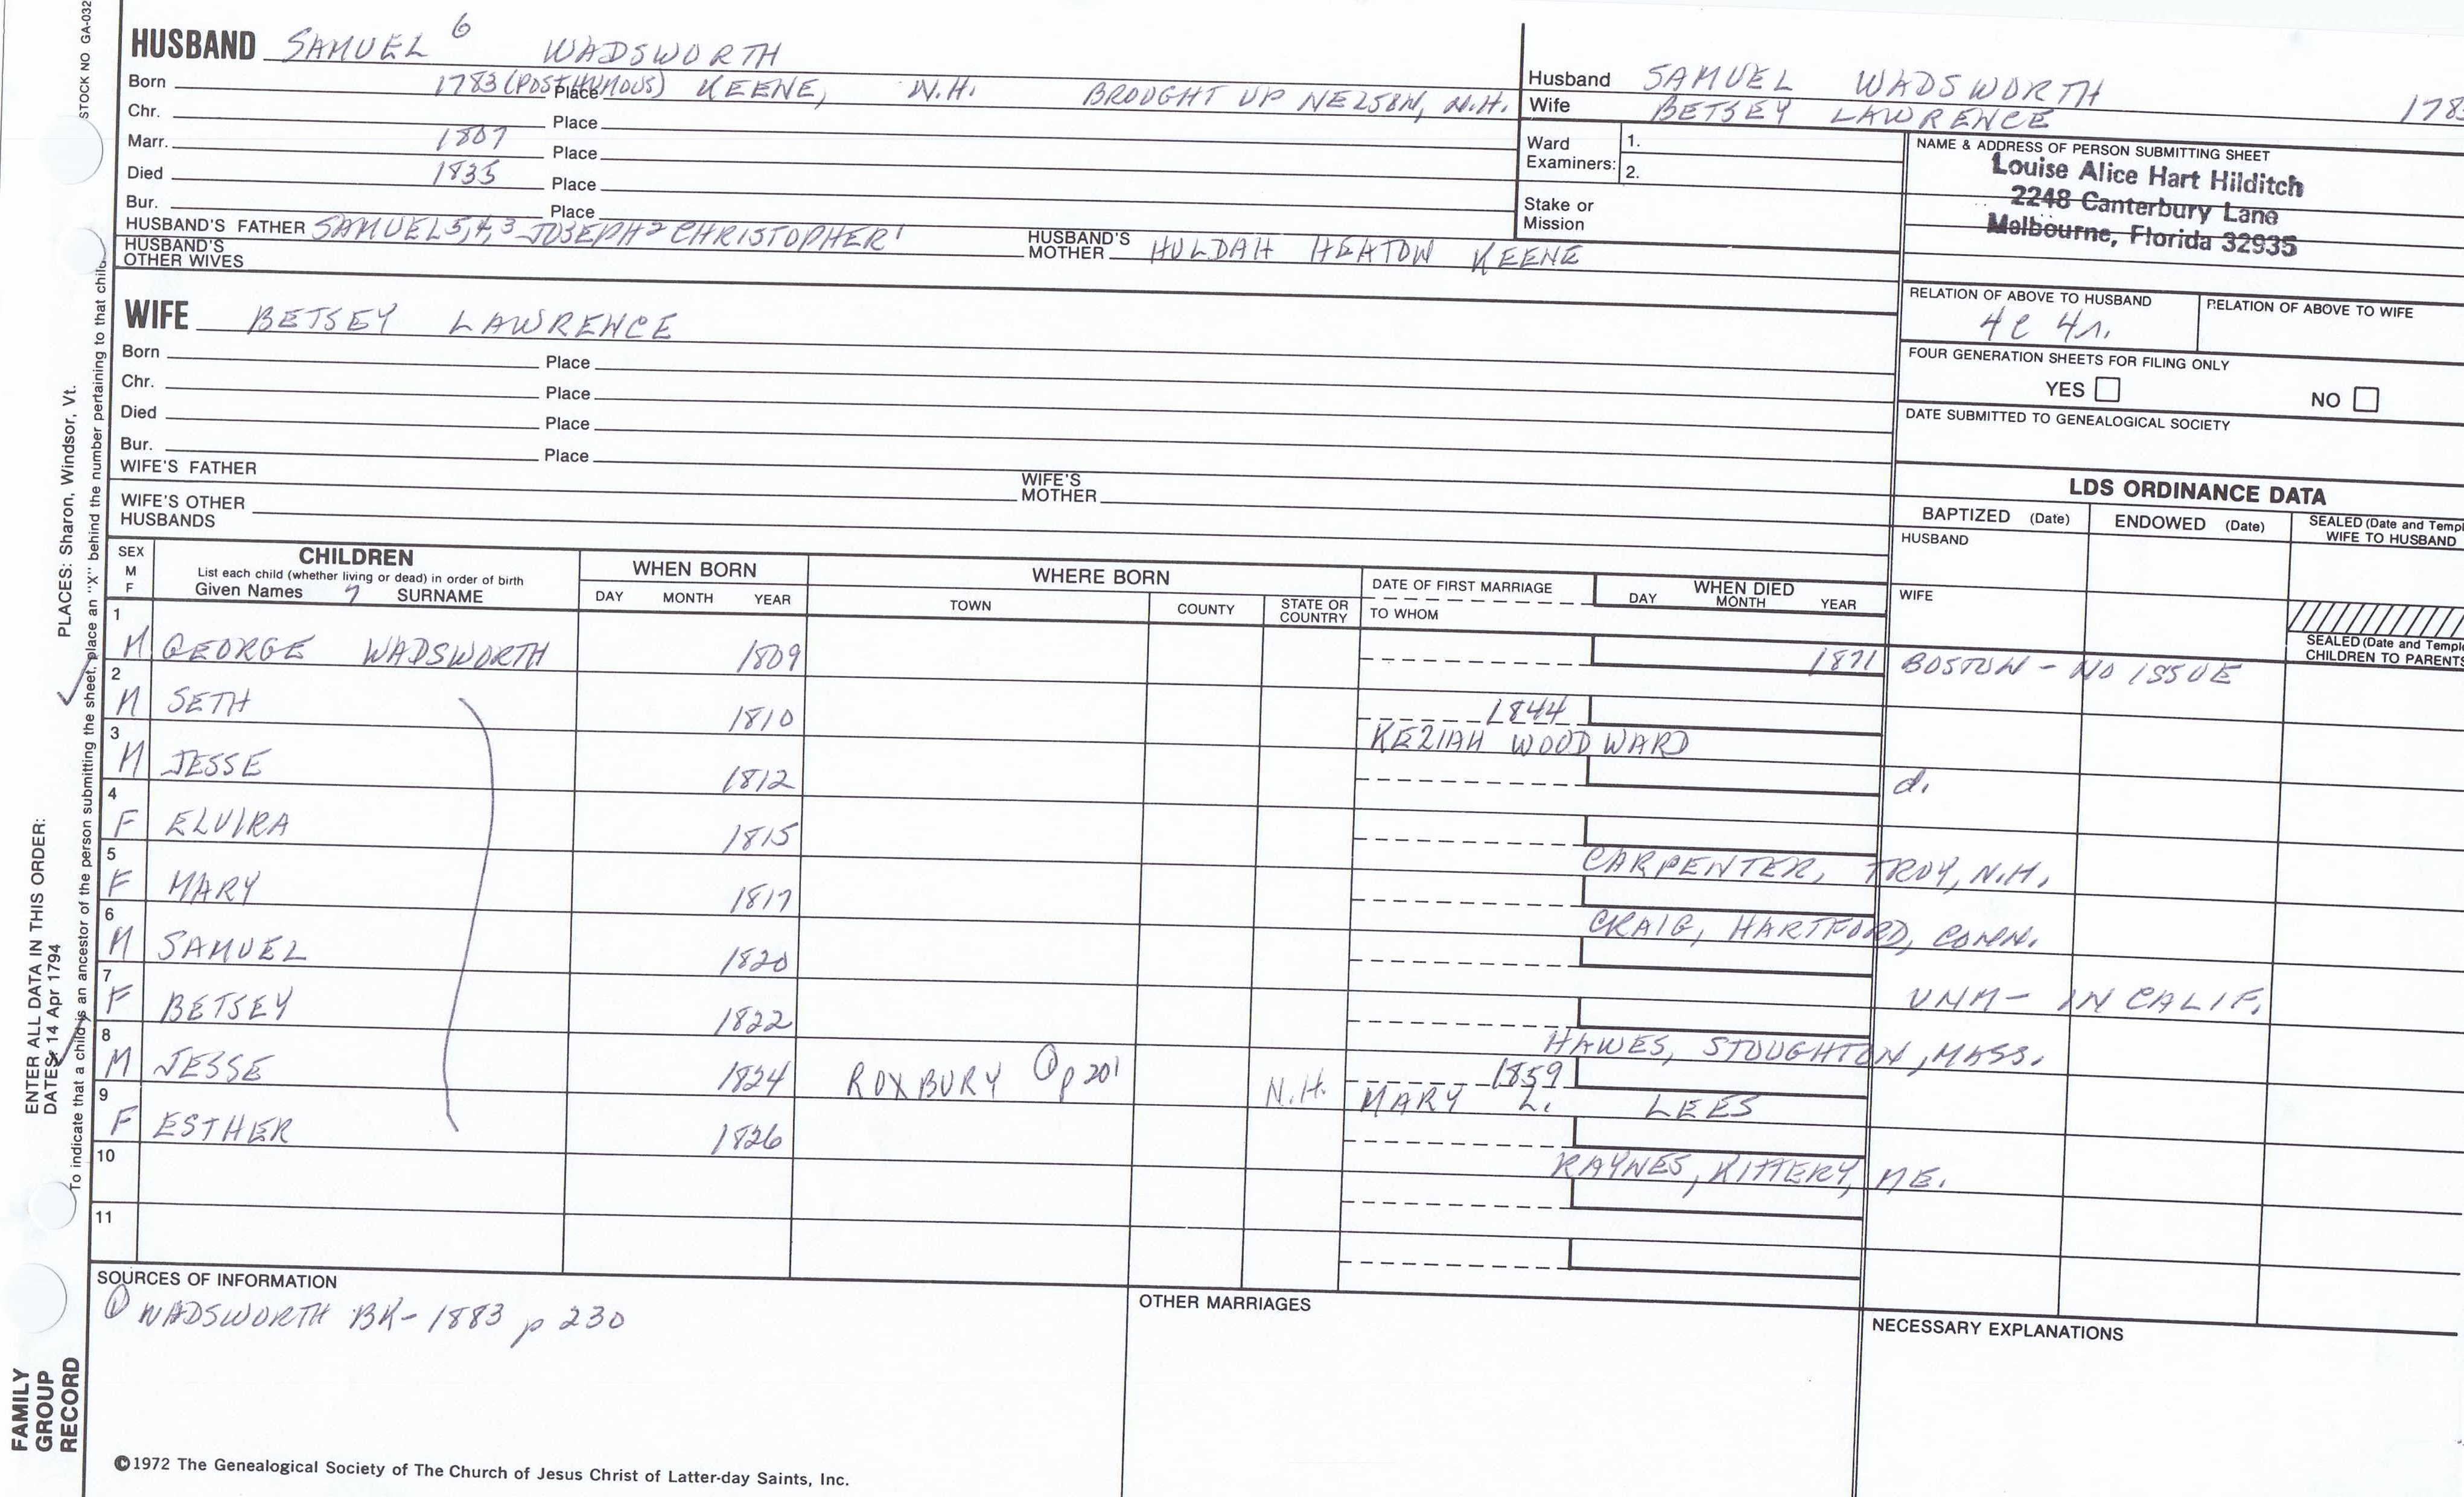 STOCK NO GA-032
HUSBAND SAMUEL 6 WADSWORTH
Born 1783 (POSTHUMOUS) Place KEENE, N.H. BROUGHT UP NELSON, N.H.
Chr. Place
Marr. 1807 Place
Died 1835 Place
Bur. Place
HUSBAND'S FATHER SAMUEL 5,4,3 JOSEPH 2 CHRISTOPHER 1 HUSBAND'S MOTHER HULDAH HEATON KEENE
HUSBAND'S OTHER WIVES
Husband SAMUEL WADSWORTH 178
Wife BETSEY LAWRENCE
Ward Examiners: 1.
2.
Stake or Mission
NAME & ADDRESS OF PERSON SUBMITTING SHEET
Louise Alice Hart Hilditch
2248 Canterbury Lane
Melbourne, Florida 32935
RELATION OF ABOVE TO HUSBAND RELATION OF ABOVE TO WIFE
4C 4r.
FOUR GENERATION SHEETS FOR FILING ONLY
YES NO
DATE SUBMITTED TO GENEALOGICAL SOCIETY
WIFE BETSEY LAWRENCE
Born Place
Chr. Place
Died Place
Bur. Place
WIFE'S FATHER WIFE'S MOTHER
WIFE'S OTHER HUSBANDS
LDS ORDINANCE DATA
BAPTIZED (Date) ENDOWED (Date) SEALED (Date and Templ
WIFE TO HUSBAND
HUSBAND
WIFE
SEALED (Date and Temple
CHILDREN TO PARENTS
SEX M F CHILDREN WHEN BORN WHERE BORN DATE OF FIRST MARRIAGE WHEN DIED
List each child (whether living or dead) in order of birth
Given Names 7 SURNAME DAY MONTH YEAR TOWN COUNTY STATE OR COUNTRY TO WHOM DAY MONTH YEAR
1 M GEORGE WADSWORTH 1809 1871 BOSTON - NO ISSUE
2 M SETH 1810 1844
KEZIAH WOODWARD
3 M JESSE 1812 d.
4 F ELVIRA 1815
CARPENTER, TROY, N.H.
5 F MARY 1817
CRAIG, HARTFORD, CONN.
6 M SAMUEL 1820 UNM - IN CALIF.
7 F BETSEY 1822
HAWES, STOUGHTON, MASS.
8 M JESSE 1824 ROXBURY ① p 201 N.H. 1859
MARY L. LEES
9 F ESTHER 1826
RAYNES, KITTERY, ME.
10
11
SOURCES OF INFORMATION
① WADSWORTH BK- 1883 p 230
OTHER MARRIAGES
NECESSARY EXPLANATIONS
©1972 The Genealogical Society of The Church of Jesus Christ of Latter-day Saints, Inc.
FAMILY GROUP RECORD
ENTER ALL DATA IN THIS ORDER:
DATES: 14 Apr 1794
PLACES: Sharon, Windsor, Vt.
To indicate that a child is an ancestor of the person submitting the sheet, place an "X" behind the number pertaining to that child.